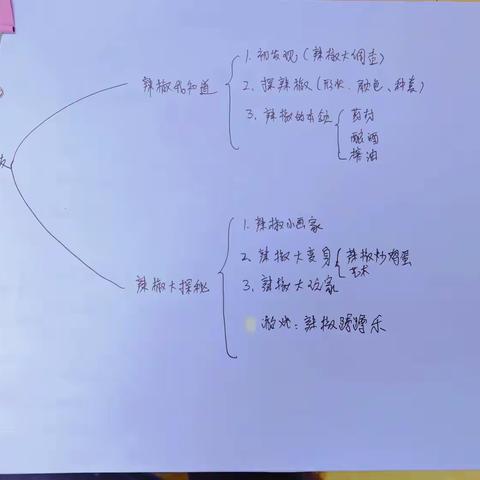 辣椒我知道
1. 初发现(辣椒大调查)
2. 探辣椒(形状、颜色、种类)
3. 辣椒的本领
药材
酿酒
榨油
辣椒大探秘
1. 辣椒小画家
2. 辣椒大变身
辣椒炒鸡蛋
艺术
3. 辣椒大玩家
游戏:辣椒蹲蹲乐